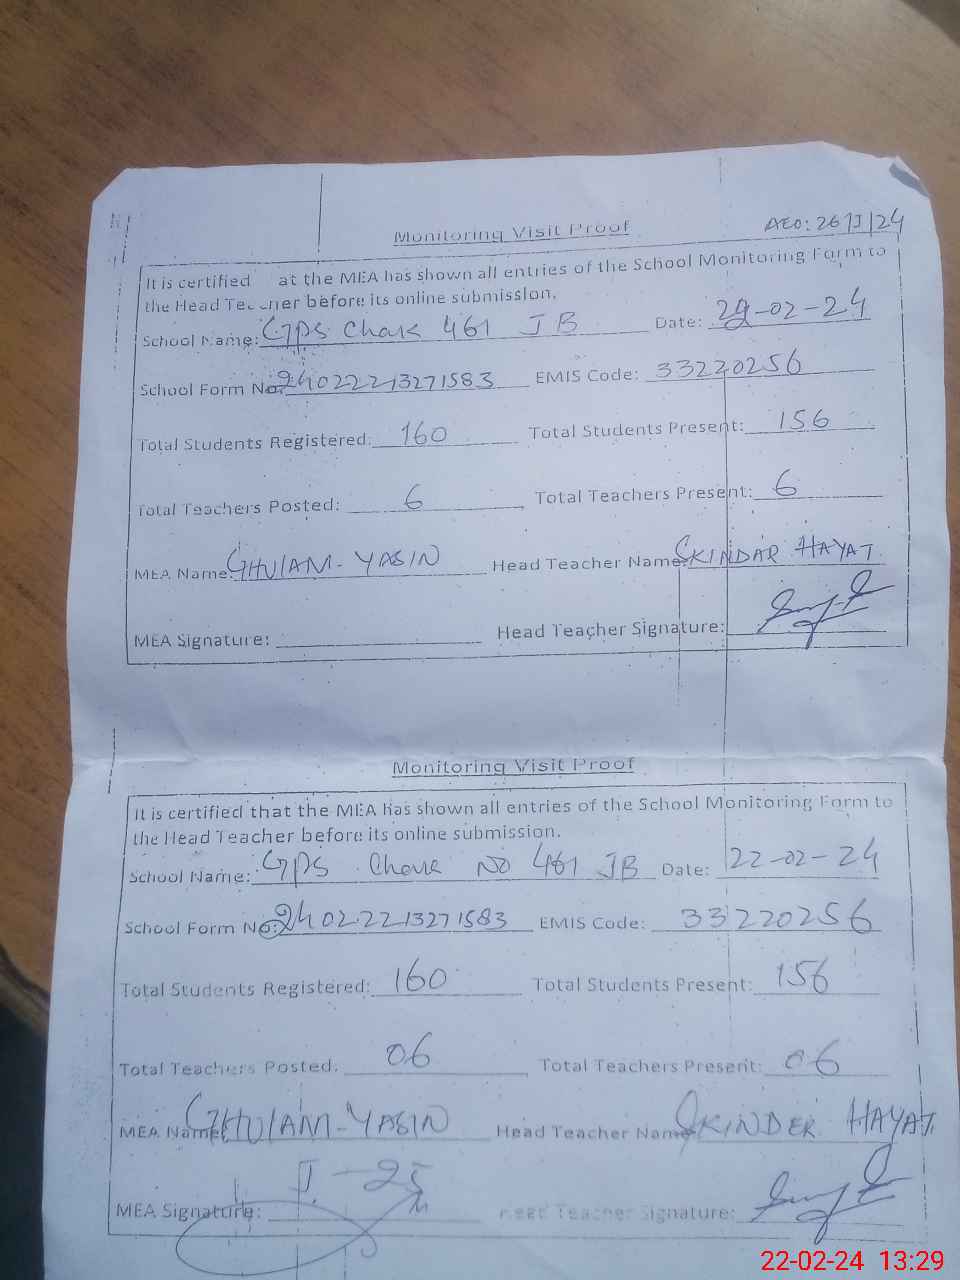 Monitoring Visit Proof
AEO: 26/1/24
It is certified at the MEA has shown all entries of the School Monitoring Form to
the Head Teacher before its online submission.
School Name: GPS Chak 461 JB Date: 22-02-24
School Form No: 2402221327 1583 EMIS Code: 33220256
Total Students Registered: 160 Total Students Present: 156
Total Teachers Posted: 6 Total Teachers Present: 6
MEA Name: GHULAM-YASIN Head Teacher Name: SKINDAR HAYAT
MEA Signature: Head Teacher Signature:
Monitoring Visit Proof
It is certified that the MEA has shown all entries of the School Monitoring Form to
the Head Teacher before its online submission.
School Name: GPS Chak NO 461 JB Date: 22-02-24
School Form No: 24022213271583 EMIS Code: 33220256
Total Students Registered: 160 Total Students Present: 156
Total Teachers Posted: 06 Total Teachers Present: 06
MEA Name: GHULAM-YASIN Head Teacher Name: SKINDER HAYAT
MEA Signature: Head Teacher Signature:
22-02-24 13:29